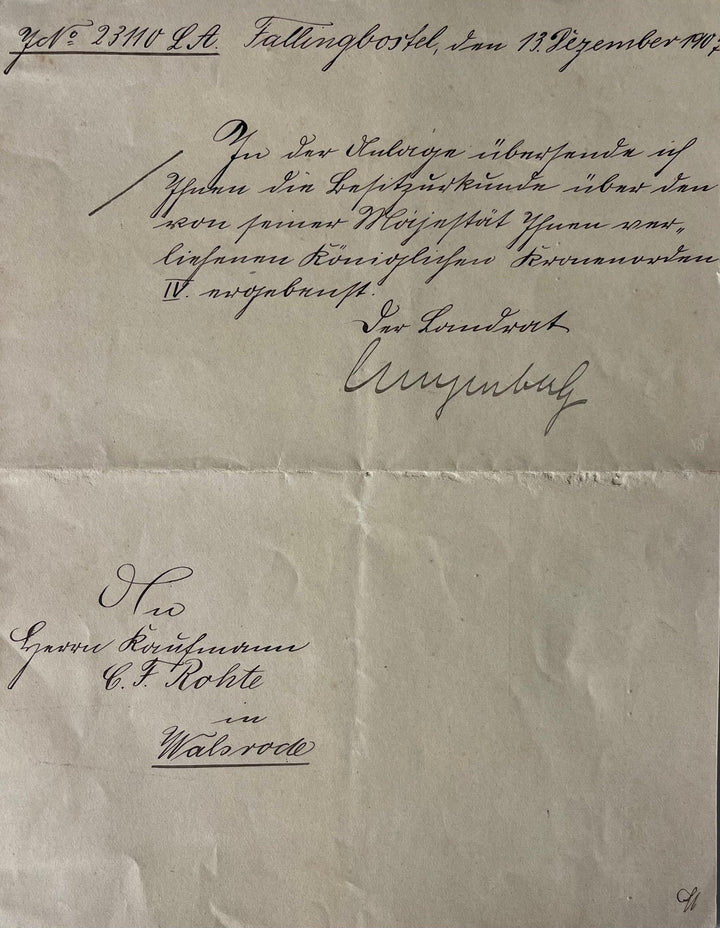 JNo 23110 L.A. Fallingbostel, den 13. Dezember 1907
In der Anlage übersende ich
Ihnen die Besitzurkunde über den
von seiner Majestät Ihnen ver„
liehenen Königlichen Kronenorden
IV. ergebenst.
Der Landrat
An
Herrn Kaufmann
C. F. Rohte
in
Walsrode